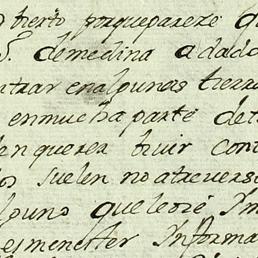 bierto porque pareze q
S. de medina a dado
ntrar en algunas tierra
en mucha parte de t
en querer viuir con
os suelen no atreuers
lguno que le oie Im
es menester Informa